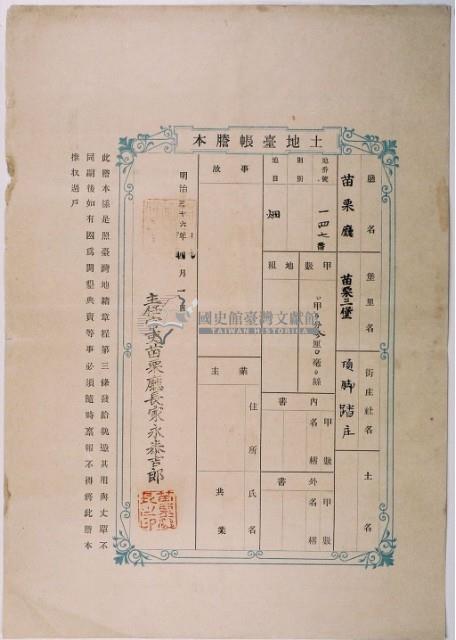 土地臺帳謄本
廳名
苗栗廳
堡里名
苗栗三堡
街庄社名
頂脚踏庄
土名
地番號
一四七番
地目
畑
甲數
地租
內書
甲數
名稱
外書
甲數
名稱
事故
業主
住所
氏名
共業
明治三十六年
月一
苗栗廳長家永泰吉郎
苗栗廳長之印
此謄本係是照臺灣地籍章程第三條發給
其用與丈單不同嗣後如有因爲開墾典賣等事必須隨時稟報不得將此謄本
推收過戶
國史館臺灣文獻館
TAIWAN HISTORICA